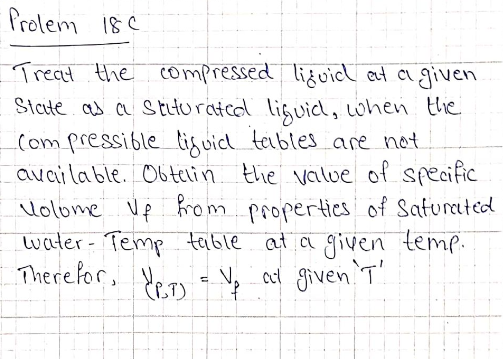 Prolem 18 C
Treat the compressed liquid at a given
State as a Saturated liquid, when the
compressible liquid tables are not
available. Obtain the value of specific
volome Vf from properties of Saturated
water - Temp table at a given temp.
Therefor, V(P,T) = Vf at given 'T'